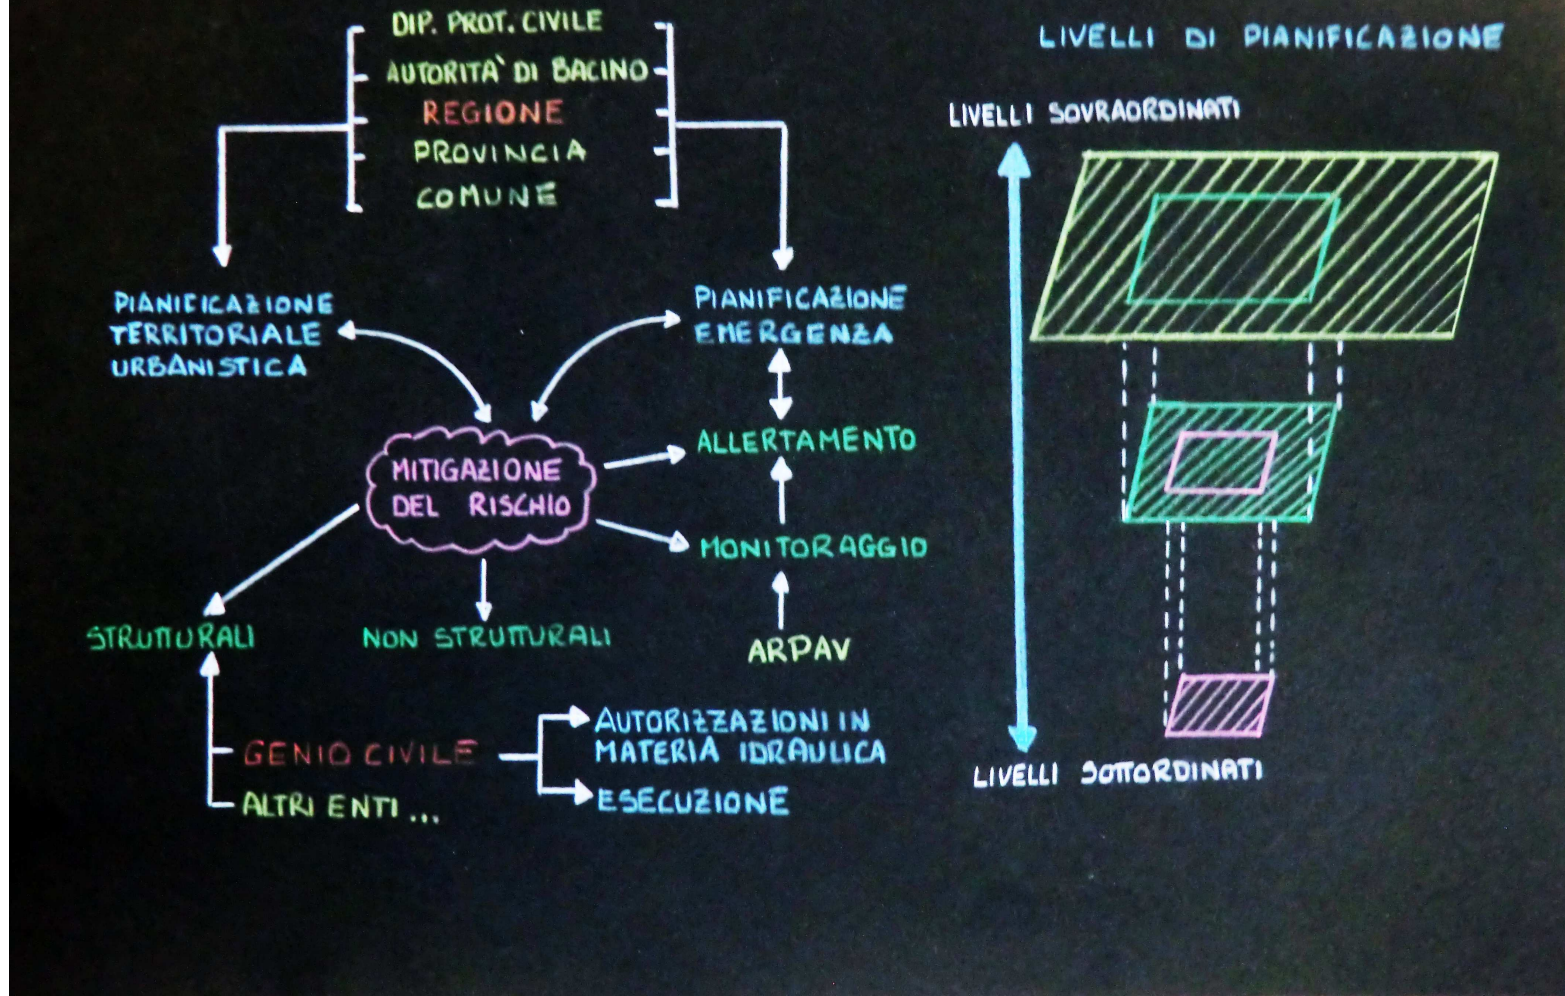 DIP. PROT. CIVILE
AUTORITA' DI BACINO
REGIONE
PROVINCIA
COMUNE
PIANIFICAZIONE
TERRITORIALE
URBANISTICA
PIANIFICAZIONE
EMERGENZA
MITIGAZIONE
DEL RISCHIO
ALLERTAMENTO
MONITORAGGIO
ARPAV
STRUTTURALI
NON STRUTTURALI
GENIO CIVILE
ALTRI ENTI...
AUTORIZZAZIONI IN
MATERIA IDRAULICA
ESECUZIONE
LIVELLI DI PIANIFICAZIONE
LIVELLI SOVRAORDINATI
LIVELLI SOTTORDINATI